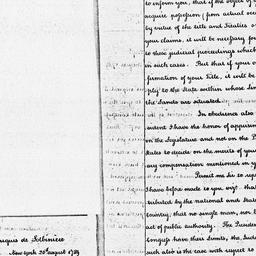 to inform you, that if the object of y
acquire possession (from actual occ
by virtue of the title and Treaties o
your claims, it will be necessary fo
to those judicial proceedings which
in such cases. But that if your o
firmation of your Title, it will be
ply to the State within whose Lim
the Lands are situated.
In obedience also
ident I have the honor of apprising
on the Legislature and not on the P
States to decide on the merits of your
any compensations mentioned in y
Permit me Sir to rep
I have before made to you viz. that
tributed by the national and State
Country; that no single man, nor b
act of public authority. The Limits
Congress have their Limits, the Judi
such also is the case with respect to
rquis de Lotbiniere
New York 20th august 1789